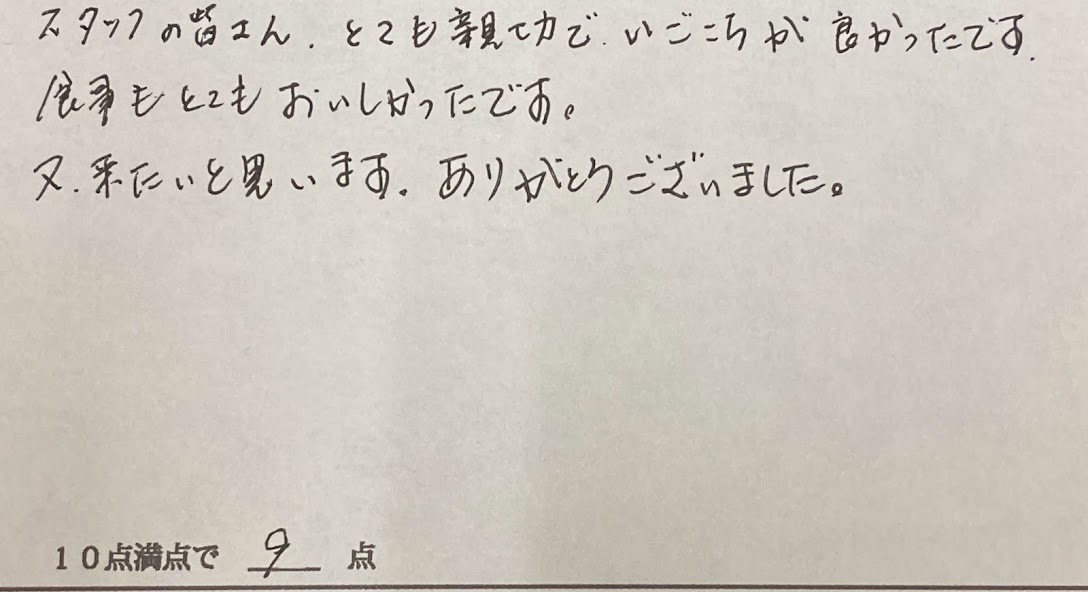 スタッフの皆さん、とても親切で、いごこちが良かったです。
食事もとてもおいしかったです。
又、来たいと思います。ありがとうございました。
10点満点で 9 点